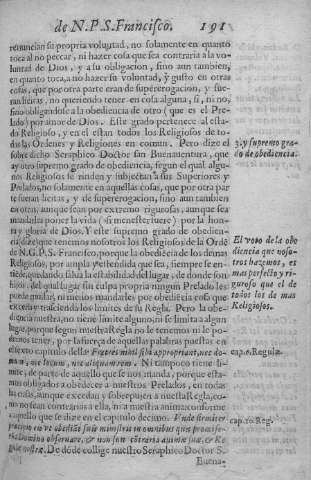 de N.P.S. Francisco. 191
renuncian su propria voluntad, no solamente en quanto
toca al no peccar, ni hazer cosa que sea contraria a la vo-
luntad de Dios, y a su obligacion, sino aun tambien,
en quanto toca, a no hazer su voluntad, y gusto en otras
cosas, que por otra parte eran de supererogacion, y fue-
ran licitas, no queriendo tener en cosa alguna, si, ni no,
sino obligandose a la obediencia de otro (que es el Pre-
lado) por amor de Dios. Este grado pertenece al esta-
do Religioso, y en el estan todos los Religiosos de to-
das las Ordenes y Religiones en comun. Pero dize el
sobre dicho Seraphico Doctor san Buenaventura, que
ay otro supremo grado de obediencia, segun el qual algu-
nos Religiosos se rinden y subjectan à sus Superiores y
Prelados, no solamente en aquellas cosas, que por otra par
te fueran licitas, y de supererogacion, sino aun tambien
en otras, aunque sean por extremo rigurosas, aunque sea
mandarles poner la vida (si menester fuere) por la hon-
ra y gloria de Dios. Y este supremo grado de obedien-
cia dize que tenemos nosotros los Religiosos de la Ordē
de N.G.P.S. Francisco, porque la obediencia de los demas
Religiosos, por amplia y estendida que sea, siempre se en-
tiede, quedando salva la estabilidad del lugar, de donde son
hijos, del qual lugar sin culpa propria ningun Prelado les
puede mudar, ni menos mandarles por obediēcia cosa que
exceda y trascienda los limites de su Regla. Pero la obe-
diēcia nuestra, no tiene limite alguno, ni se limita a algun
lugar, porque segun nuestra Regla no le tenemos ni le po-
demos tener, por la fuerça de aquellas palabras puestas en
el sexto capitulo della: Fratres nihil sibi approprient, nec do-
mum, nec locum, nec aliquam rem. Ni tampoco tiene li-
mite, de parte de aquello que se nos manda, porque esta-
mos obligados a obedecer a nuestros Prelados, en todas
las cosas, aunque excedan y sobrepujen a nuestra Regla, co-
mo no sean contrarias a ella, ni a nuestra anima: conforme
aquello que se dize en el capitulo decimo. Unde firmiter
præcipio eis ut obediāt suis ministris in omnibus quæ promise-
runt Domino observare, & non sūt cōtraria animæ suæ, & Re
gulæ nostræ. De dōde collige nuestro Seraphico Doctor S.
Buena-
3. y supremo gra-
do de obediencia.
El voto de la obe
diencia que noso-
tros hazemos, es
mas perfecto y ri-
guroso que el de
todos los de mas
Religiosos.
cap. 6. Regulæ
cap. 10. Reg.